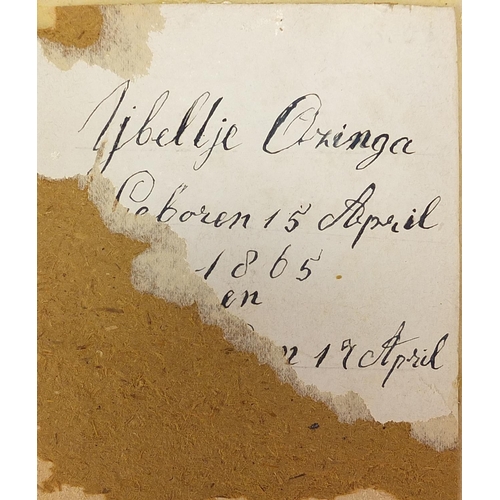 Ijbeltje Ozinga
Geboren 15 April
1865
en
n 17 April